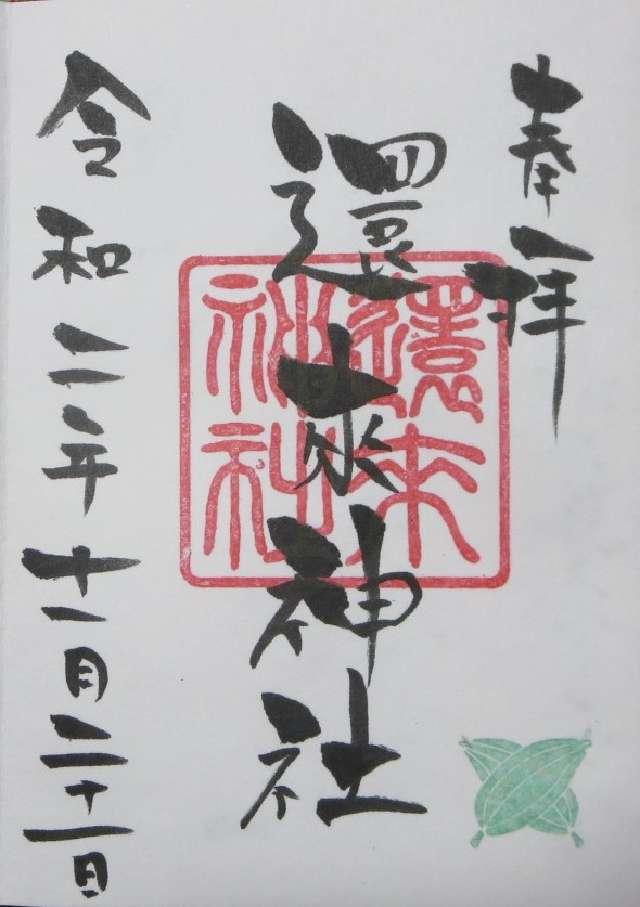 奉拝
還来神社
還来
神社
令和二年十一月二十一日